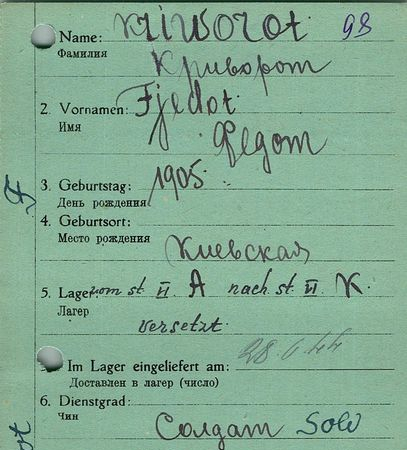 Name: Kriworot 98
Фамилия Криворот
2. Vornamen: Fjedot.
Имя Федот
3. Geburtstag: 1905.
День рождения
4. Geburtsort:
Место рождения
Киевская
5. Lager vom st. VI. A nach st. VI K.
Лагерь
versetzt.
28.6.44
Im Lager eingeliefert am:
Доставлен в лагерь (число)
6. Dienstgrad:
Чин Солдат Sold